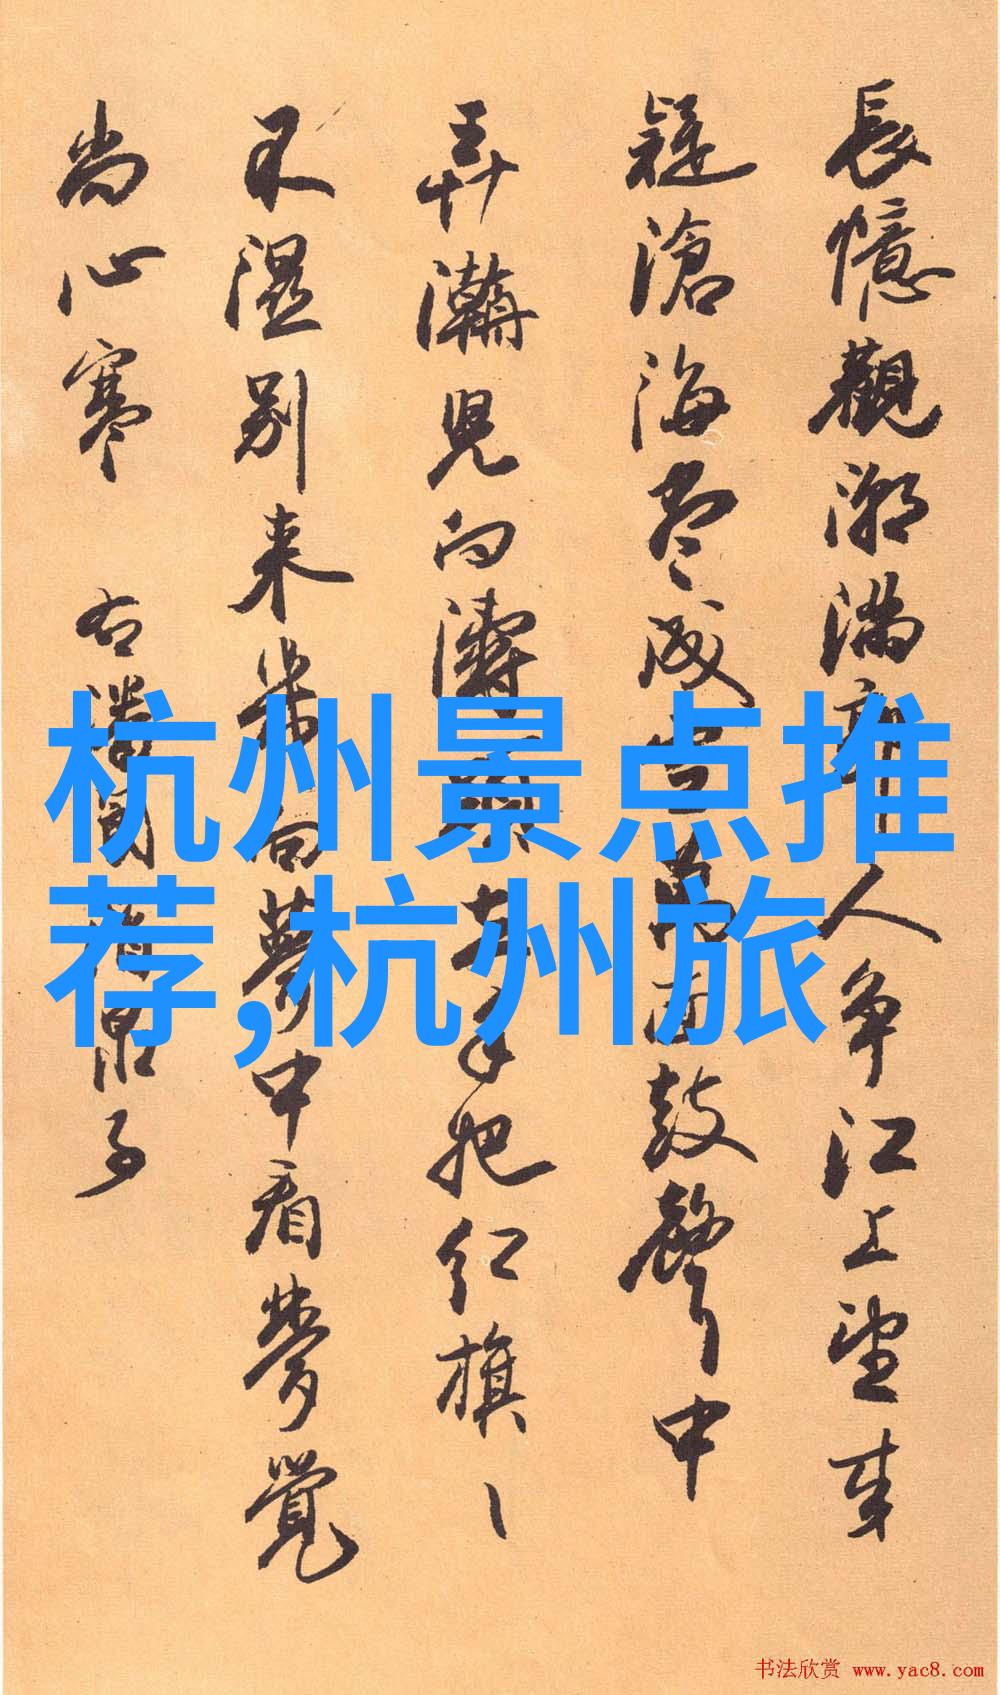 長憶觀潮滿郭人爭江上望来
疑滄海尽成空萬面鼓聲中
弄潮児向濤頭立手把红旗、
不湿别来幾向夢中看夢覺
尚心寒
右潘阆酒泉子
杭州景点推
荐,杭州旅
书法欣赏 www.yac8.com